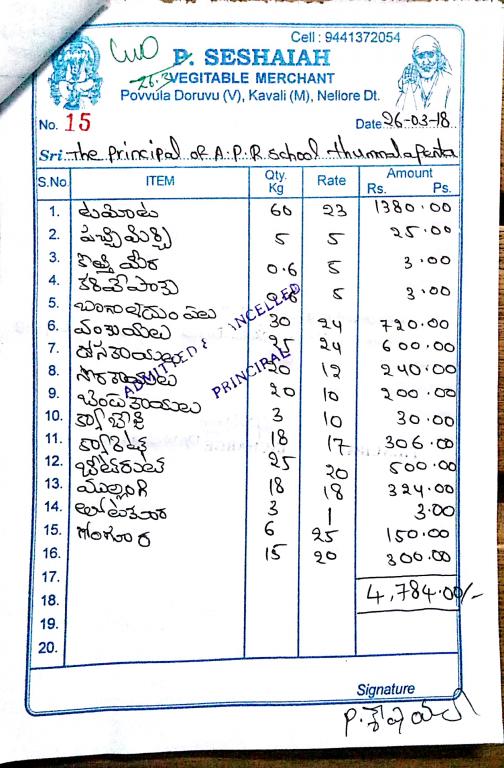 Cell : 9441372054
P. SESHAIAH
VEGITABLE MERCHANT
Povvula Doruvu (V), Kavali (M), Nellore Dt.
No. 15 Date 26-03-18
Sri the principal of A.P.R school thummalapenta
S.No. ITEM Qty. Kg Rate Amount Rs. Ps.
1. టమోటా 60 23 1380.00
2. పచ్చిమిర్చి 5 5 25.00
3. కొత్తిమీర 0.6 5 3.00
4. కరివేపాకు 0.6 5 3.00
5. 30 24 720.00
6. వంకాయలు 25 24 600.00
7. దోసకాయలు 20 12 240.00
8. సొరకాయలు 20 10 200.00
9. బెండకాయలు 3 10 30.00
10. క్యాబేజి 18 17 306.00
11. క్యారెట్ 25 20 500.00
12. బీట్‌రూట్ 18 18 324.00
13. ముల్లంగి 3 1 3.00
14. 6 25 150.00
15. గోంగూర 15 20 300.00
16.
17.
18. 4,784.00/-
19.
20.
ADMITTED & CANCELLED
PRINCIPAL
Signature
P. శేషయ్య